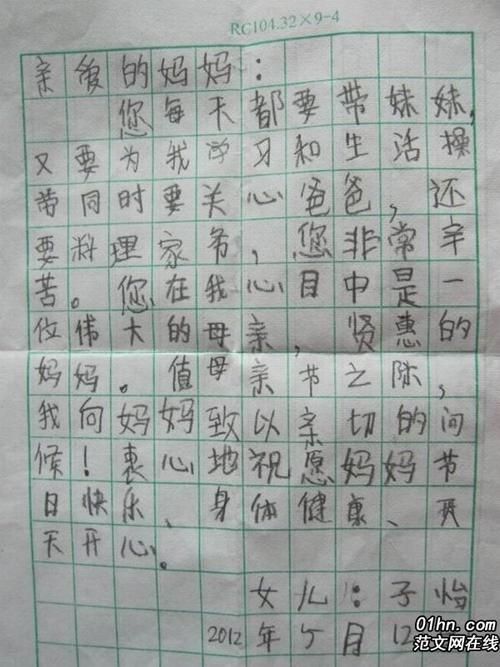 RC104.32×9-4
亲後的妈妈：
您每天都要带妹妹,
又要为我学习和生活操
劳同时要关心爸爸,还
要料理家务,您非常辛
苦。您在我心目中是一
位伟大的母亲,贤惠的
妈妈。值母亲节之际,
我向妈妈致以亲切的问
候!衷心地祝愿妈妈节
日快乐、身体健康、天
天开心。
女儿：子怡
2012年5月12
01hn.com
范文网在线